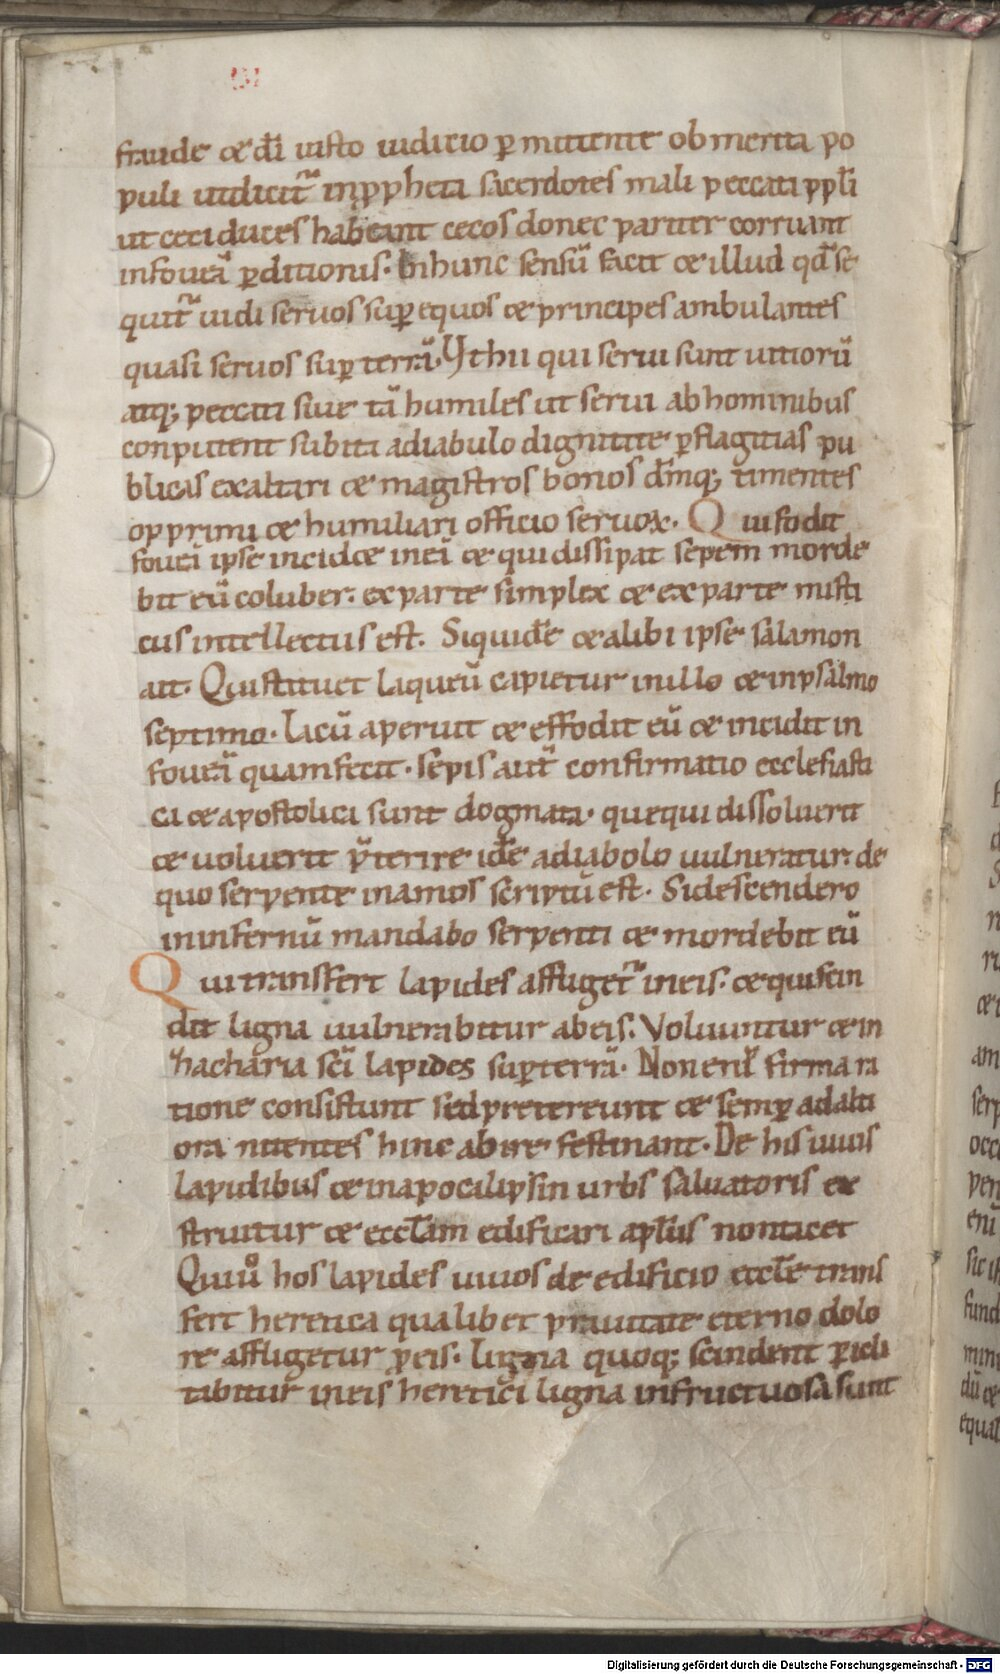 fraude & di iusto iudicio p̄mittente ob merita po
puli iudicit᷑ in ꝓpheta sacerdotes mali peccati ppłi
ut ceci duces habeant cecos donec pariter corruant
in foueā ꝑditionis. In hunc sensū facit & illud qđ se
quit᷑ uidi seruos suꝑ equos & principes ambulantes
quasi seruos suꝑ terrā. Ythu qui serui sunt uitiorū
atq; peccati siue tā humiles ut serui ab hominibus
conputent subiti a diabulo dignitate ꝑ flagitias pu
blicas exaltari & magistros bonos dm̄q; timentes
opprimi & humiliari officio seruoꝝ. Qui fodit
foueā ipse incid& in eā & qui dissipat sepem morde
bit eū coluber. ex parte simplex & ex parte misti
cus intellectus est. Siquidē & alibi ipse salamon
ait. Qui statuet laqueū capietur in illo & in psalmo
septimo. Lacū aperuit & effodit eū & incidit in
foueā quam fecit. sepis aut̄ confirmatio ecclesiasti
ca & apostolica sunt dogmata. que qui dissoluerit
& uoluerit p̄terire idē a diabolo uulneratur. de
quo serpente in amos scriptū est. Si descendero
in infernū mandabo serpenti & mordebit eū
Qui transfert lapides affliget᷑ in eis. & qui scin
dit ligna uulnerabitur ab eis. Voluuntur & in
hacharia sc̄i lapides suꝑ terrā. Non eni firma ra
tione consistunt sed pretereunt & semꝑ ad alti
ora nitentes hinc abire festinant. De his uiuis
lapidibus & in apocalipsin urbs saluatoris ex
struitur & eccłam edificari apłus non tacet
Qui uͦ hos lapides uiuos de edificio eccłe trans
fert heretica qualibet prauitate eterno dolo
re affligetur p eis. ligna quoq; scindent ꝑicli
tabitur in eis heretici ligna infructuosa sunt
Digitalisierung gefördert durch die Deutsche Forschungsgemeinschaft - DFG